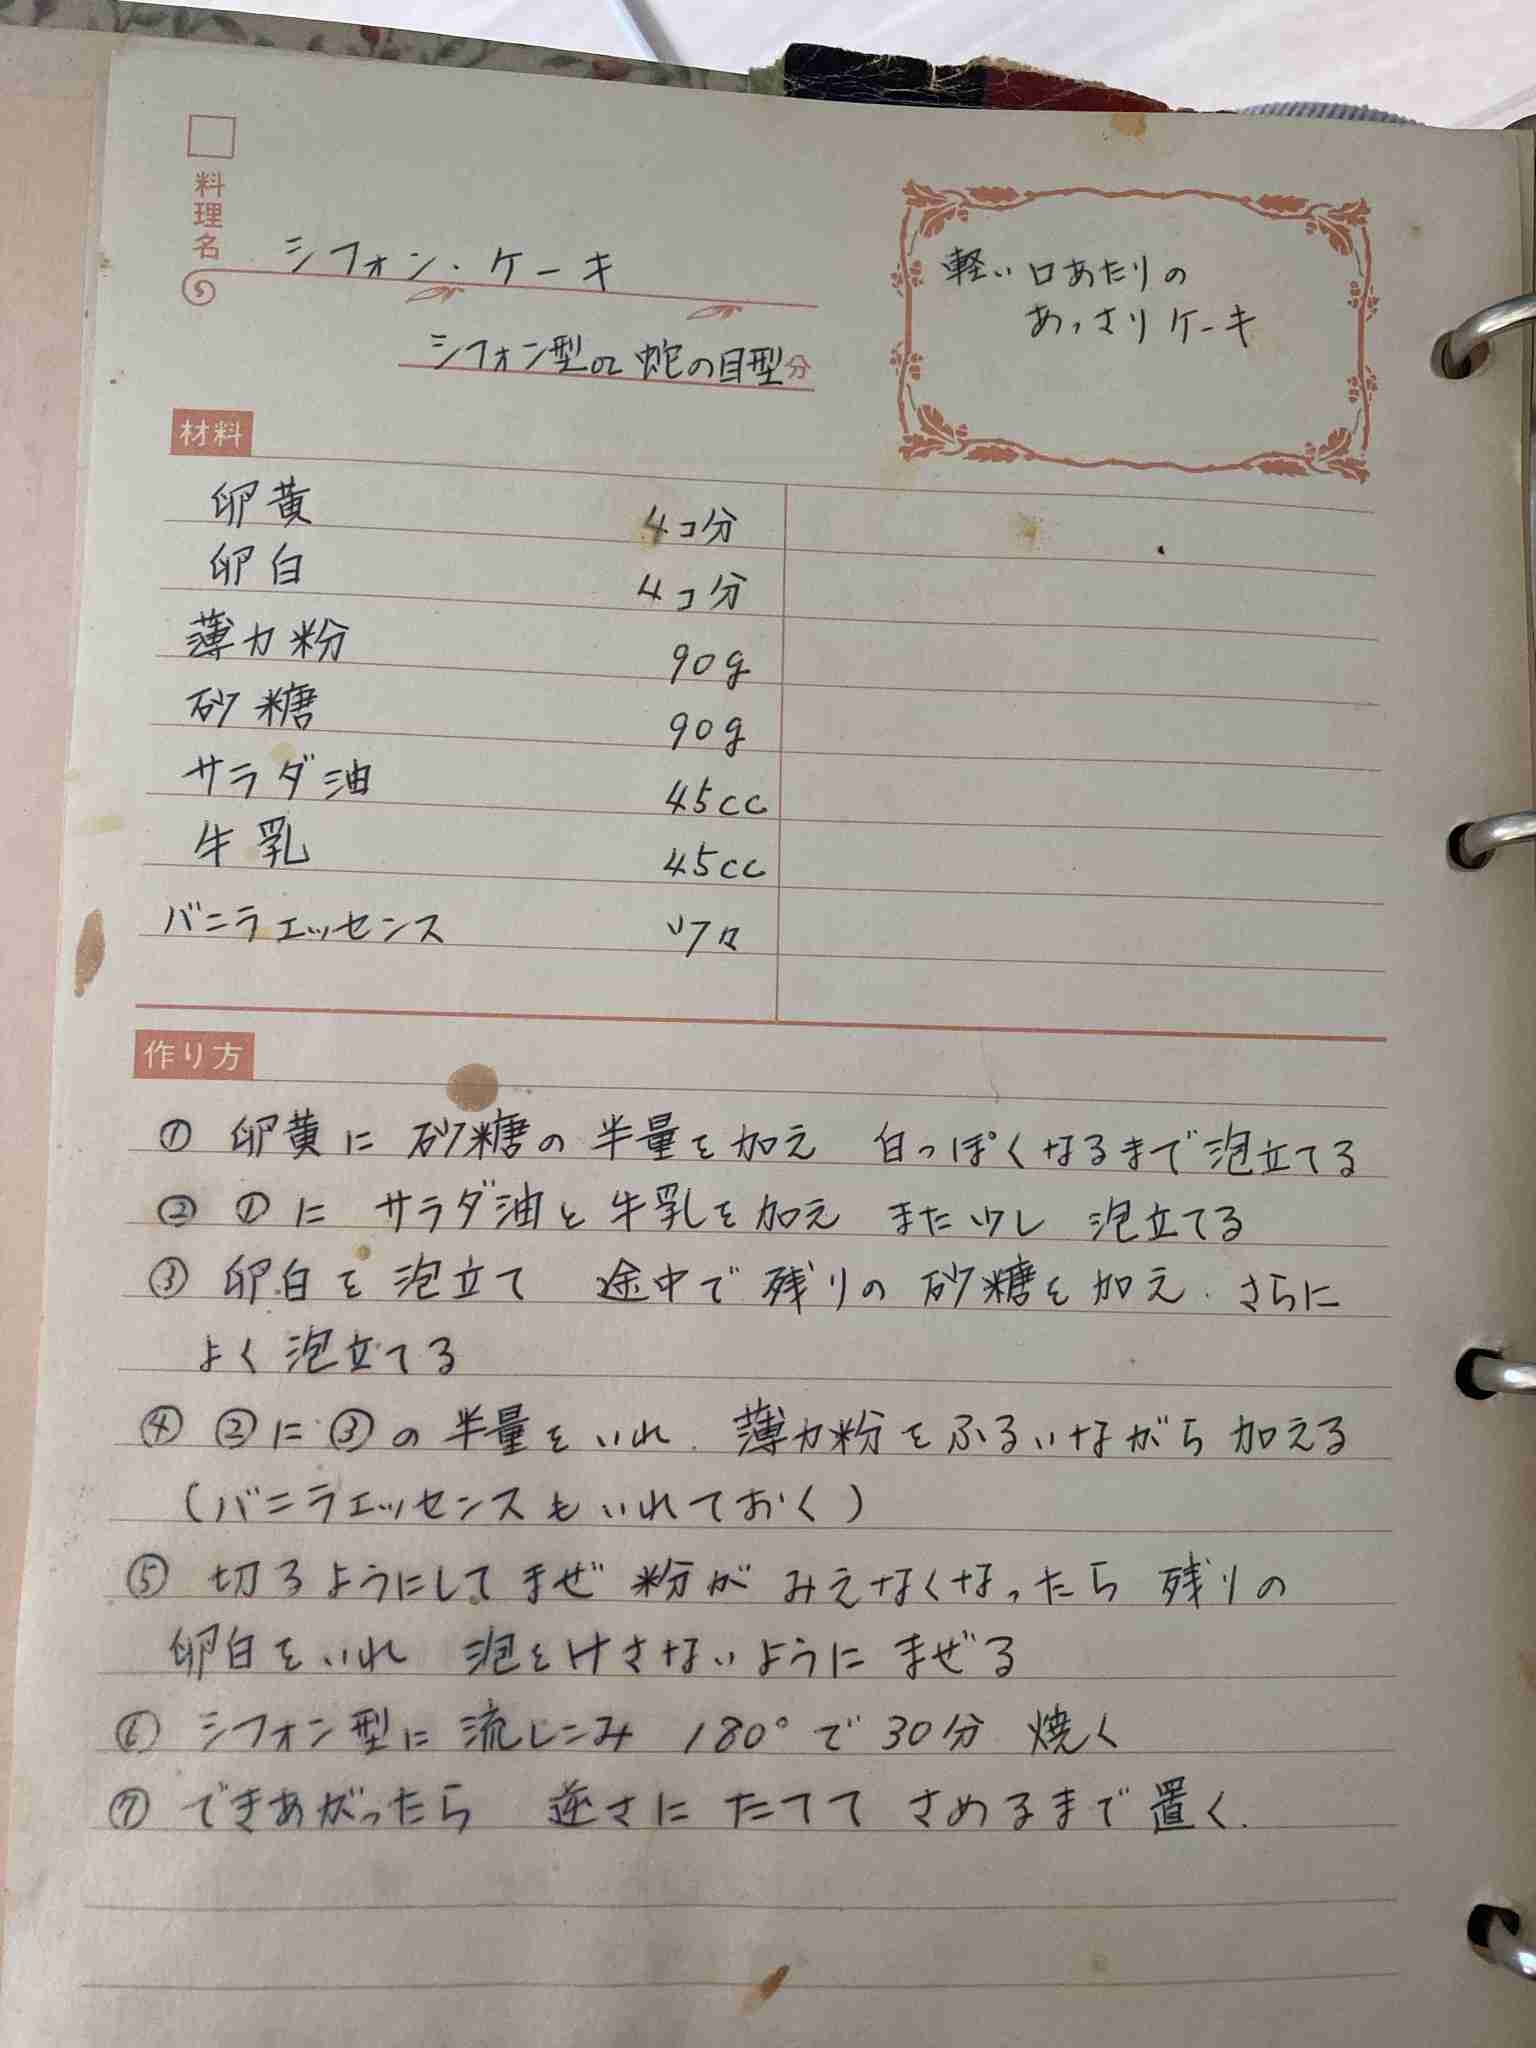 料理名
シフォン・ケーキ
シフォン型or蛇の目型分
軽い口あたりの
あっさりケーキ
材料
卵黄 4コ分
卵白 4コ分
薄力粉 90g
砂糖 90g
サラダ油 45cc
牛乳 45cc
バニラエッセンス 少々
作り方
① 卵黄に 砂糖の 半量を加え 白っぽくなるまで泡立てる
② ①に サラダ油と牛乳を加え また少し 泡立てる
③ 卵白を 泡立て 途中で 残りの 砂糖を加え、さらに
よく泡立てる
④ ②に③の 半量をいれ、薄力粉をふるいながら加える
(バニラエッセンスもいれておく)
⑤ 切るようにしてまぜ 粉が みえなくなったら 残りの
卵白をいれ 泡をけさないようにまぜる
⑥ シフォン型に 流しこみ 180°で30分 焼く
⑦ できあがったら 逆さに たてて さめるまで置く.